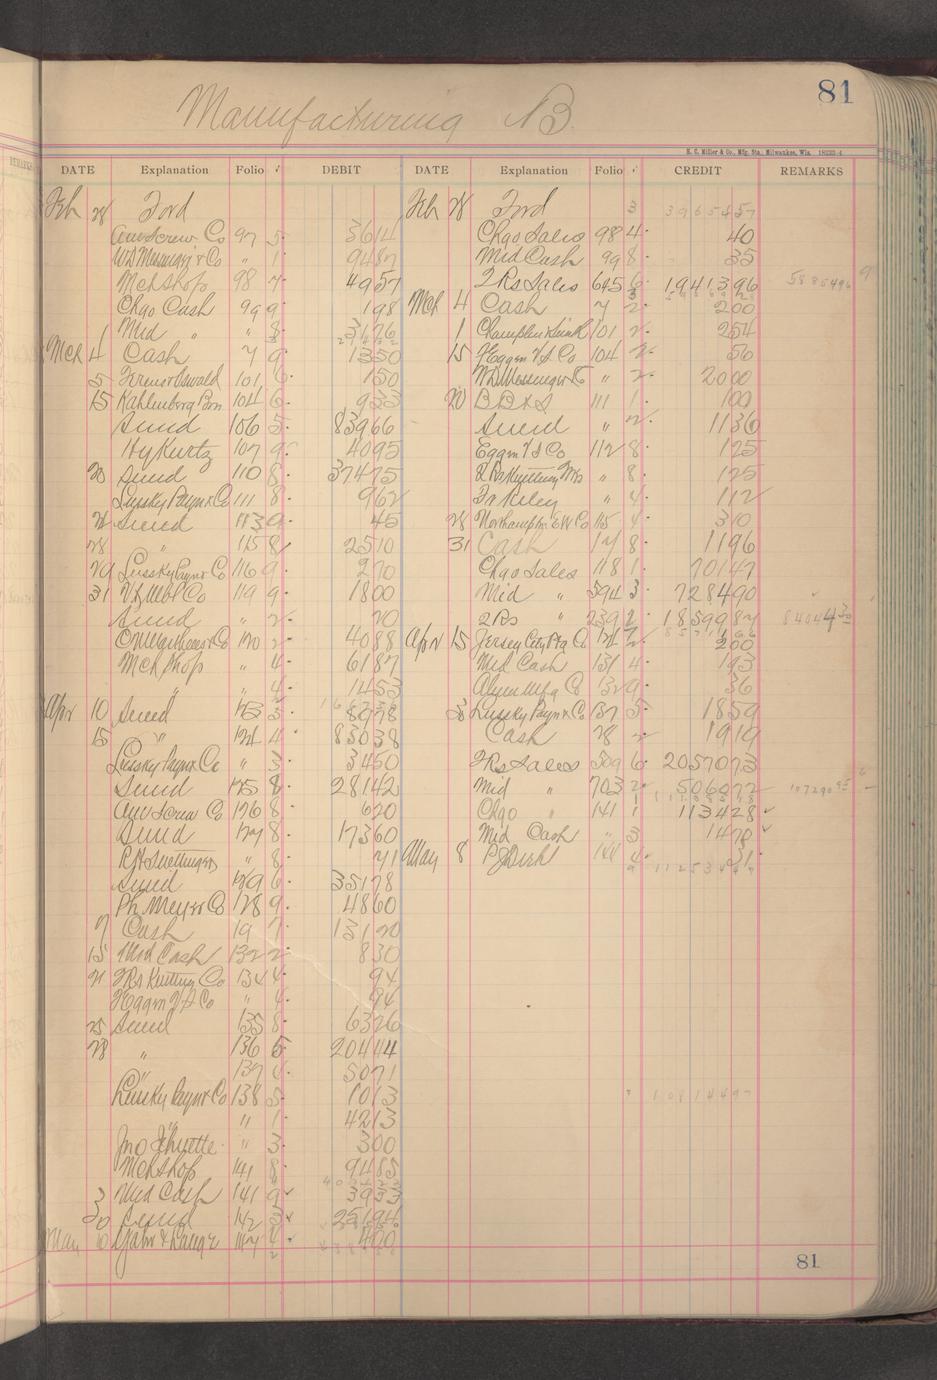 81
Manufacturing B.
H. C. Miller & Co., Mfg. Sta., Milwaukee, Wis. 18232-4
DATE Explanation Folio √ DEBIT DATE Explanation Folio √ CREDIT REMARKS
Feb 28 Ford Feb 28 Ford 3
Am Screw Co 97 5 3614 Chgo Sales 98 4 40
W D Messinger & Co " 1 9487 Mid Cash 99 8 35
Mch shop 98 7 4957 2Rs Sales 645 6 1941396
Chgo Cash 99 9 198 Mch 4 Cash 7 2 200
Mid " " 8 3176 1 101 2 254
Mch 4 Cash 7 9 1350 15 F Eggers V S Co 104 2 56
5 Kremer Oswald 101 6 150 W D Messenger & Co " 2 2000
15 Kahlenberg Bros 104 6 933 20 B B & S 111 1 100
Sund 106 5 83966 Sund " 2 1136
Hy Kurtz 107 9 4095 Eggers V S Co 112 8 125
20 Sund 110 8 37475 2 Rs Knitting Mls " 8 125
Lussky Payn & Co 111 8 962 Riley " 4 112
Sund 113 9 45 28 Northampton E W Co 115 4 310
28 " 115 8 2510 31 Cash 17 8 1196
29 Lussky Payn & Co 116 9 270 Chgo Sales 118 1 70147
31 119 9 1800 Mid " 594 3 728490
Sund " 2 70 2Rs " 239 2 1859987
120 2 4088 Apr 15 Jersey City Ptg Co 124 2 200
Mch Shop " 4 6187 Mid Cash 131 4 193
" " 4 1453 Alum Mfg Co 132 9 36
Apr 10 Sund 123 3 8978 Lussky Payn & Co 137 5 1859
15 " 124 4 83038 Cash 28 2 1919
Lussky Payn & Co " 3 3450 2Rs Sales 509 6 2057073
Sund 125 8 28142 Mid " 703 2 506077
Am Screw Co 126 8 620 Chgo " 141 1 113428
Sund 127 8 17360 Mid Cash " 3 1478
" 8 71 May 8 P J Dirk 144 4 31
Sund 129 6 35178
Ph Meyer Co 128 9 4860
7 Cash 19 7 13120
15 Mid Cash 132 2 830
21 2Rs Knitting Co 134 4 94
F Eggers V S Co " 4 94
25 Sund 135 8 6326
28 " 136 5 20444
" 137 4 5071
Lussky Payn & Co 138 5 1013
" " 1 4213
Jno Schuette " 3 300
Mch shop 141 8 9485
3 Mid Cash 141 9 3933
30 Sund 142 3 25194
May 10 147 4 420
81